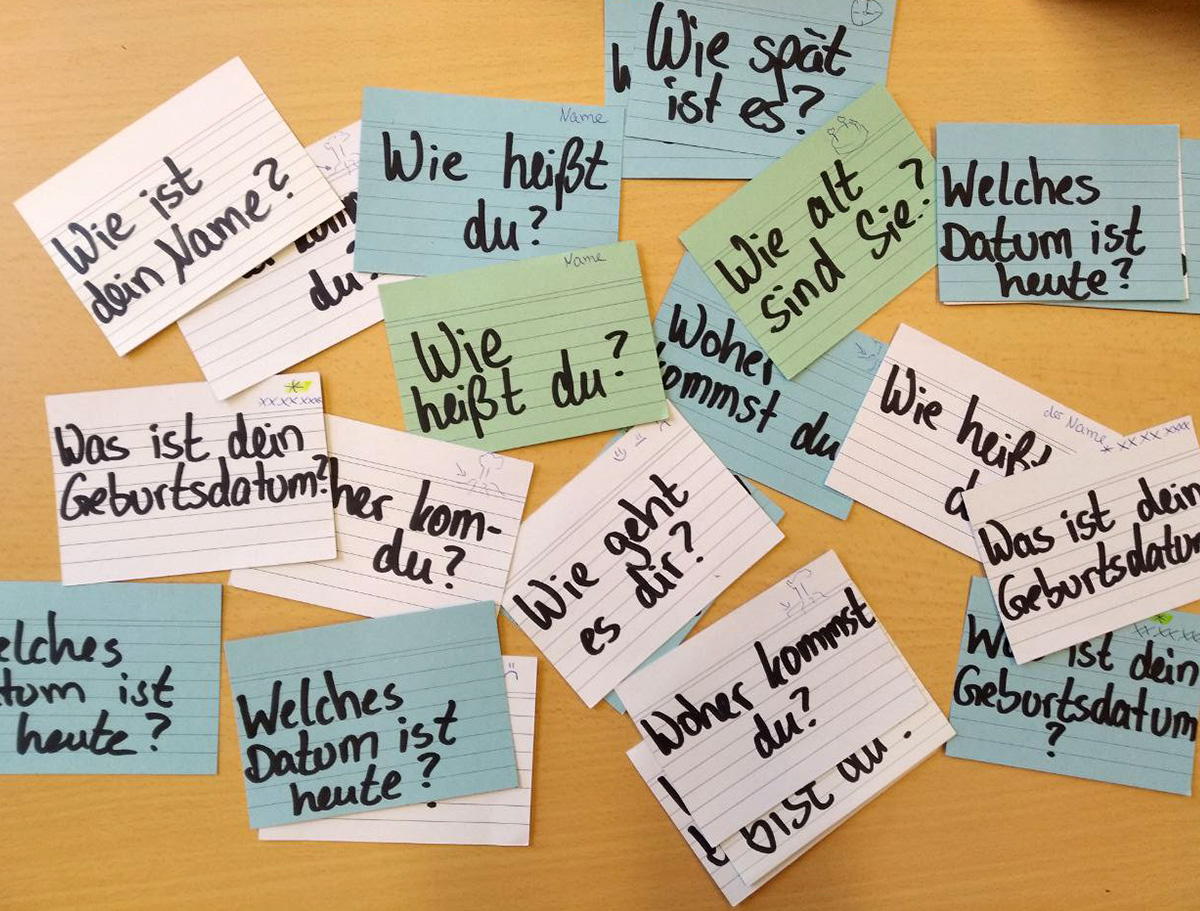 Wie spät
ist es?
Wie ist
dein Name?
Name
Wie heißt
du?
Wie alt
sind Sie?
Welches
Datum ist
heute?
du?
Name
Wie
heißt du?
Woher
kommst du
der Name
Wie heiß
* xx.xx.xxxx
Was ist dein
Geburtsdatum
*
xx.xx.xxxx
Was ist dein
Geburtsdatum?
her kom-
du?
Wie geht
es dir?
Woher kommst
du?
bist du
ist dein
Geburtsdatum
?
elches
tum ist
heute?
Welches
Datum ist
heute?